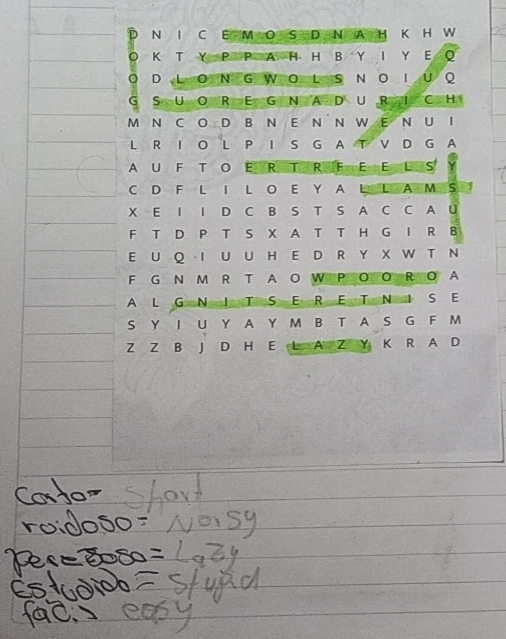 D N I C E M O S D N A H K H W
O K T Y P P A H H B Y I Y E Q
O D L O N G W O L S N O I U Q
G S U O R E G N A D U R I C H
M N C O D B N E N N W E N U I
L R I O L P I S G A T V D G A
A U F T O E R T R F E E L S Y
C D F L I L O E Y A L L A M S
X E I I D C B S T S A C C A U
F T D P T S X A T T H G I R B
E U Q I U U H E D R Y X W T N
F G N M R T A O W P O O R O A
A L G N I T S E R E T N I S E
S Y I U Y A Y M B T A S G F M
Z Z B J D H E L A Z Y K R A D
Short
roidoso = Noisy
= Lazy
= Stupid
easy